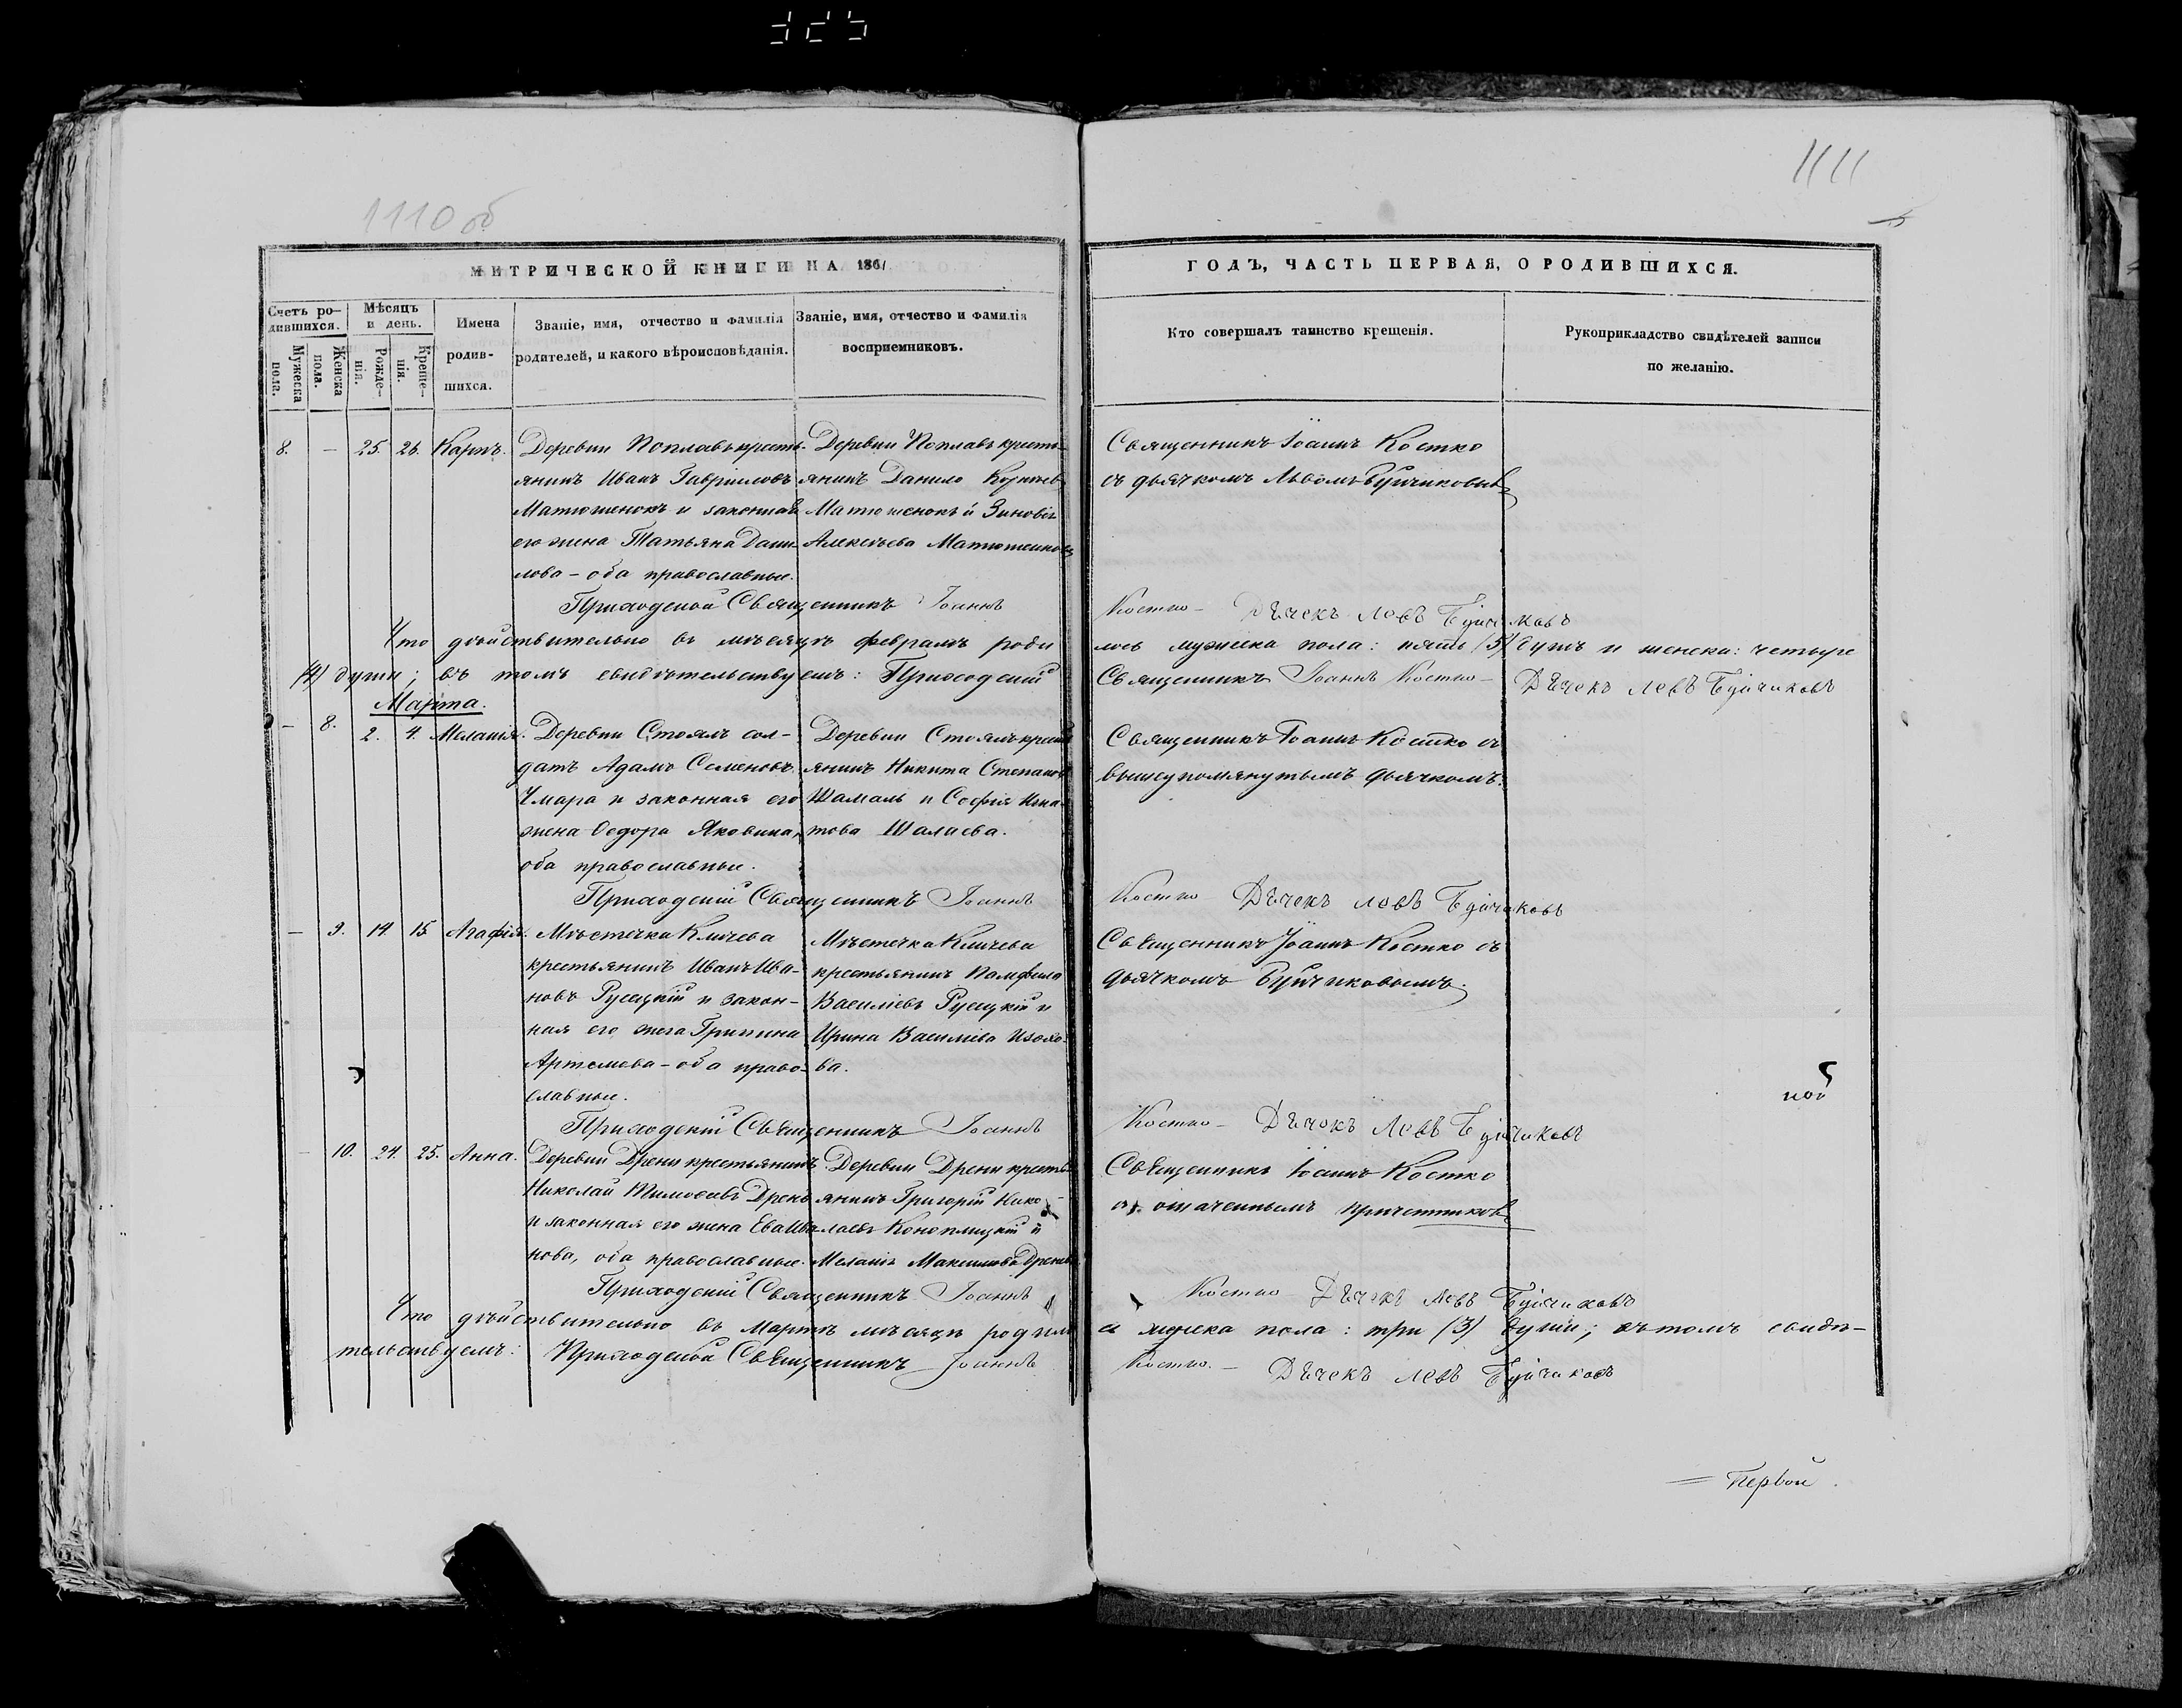 1110 об
1111
МИТРИЧЕСКОЙ КНИГИ НА 1861
ГОДЪ, ЧАСТЬ ПЕРВАЯ, О РОДИВШИХСЯ.
Счетъ ро-
дившихся.
Мужеска пола.
Женска пола.
Мѣсяцъ
и день.
Рожде-
нія.
Креще-
нія.
Имена
родив-
шихся.
Званіе, имя, отчество и фамилія
родителей, и какого вѣроисповѣданія.
Званіе, имя, отчество и фамилія
воспріемниковъ.
Кто совершалъ таинство крещенія.
Рукоприкладство свидѣтелей записи
по желанію.
8. – 25. 26. Карпъ.
Деревни Поплавъ кресть-
янинъ Иванъ Гавриловъ
Матюшенокъ и законная
его жена Татьяна Дани-
лова – оба православные.
Деревни Поплавъ кресть-
янинъ Данило
Матюшенокъ и Зиновія
Алексѣева
Священникъ Іоаннъ Костко
съ дьячкомъ Львомъ
Приходской Священникъ Іоаннъ Костко – Дьячекъ Левъ Буйчиковъ
Что дѣйствительно въ мѣсяцѣ февралѣ роди лось мужеска пола: пять (5) душъ и женска: четыре
(4) души; въ томъ свидѣтельствуемъ: Приходскій Священникъ Іоаннъ Костко – Дьячокъ Левъ Буйчиковъ
Марта.
– 8. 2. 4. Меланія.
Деревни Стоялъ сол-
датъ Адамъ Семеновъ
Чмара и законная его
жена Ѳедора Яковлева,
оба православные.
Деревни Стоялъ крестья
янинъ Никита Степановъ
Шамаль и Софія Игна-
това Шалаева.
Священникъ Іоаннъ Костко съ
вышеупомянутымъ дьячкомъ.
Приходскій Священникъ Іоаннъ Костко Дьячекъ Левъ Буйчиковъ
– 9. 14. 15. Агафія.
Мѣстечка Кличева
крестьянинъ Иванъ Ива-
новъ Русецкій и закон-
ная его жена Грипина
Артемьева – оба право-
славные.
Мѣстечка Кличева
крестьянинъ Памфилъ
Василіевъ Русецкій и
Ирина Василіева Изохо-
ва.
Священникъ Іоаннъ Костко съ
дьячкомъ Буйчиковымъ.
Приходскій Священникъ Іоаннъ Костко – Дьячокъ Левъ Буйчиковъ
– 10. 24. 25. Анна.
Деревни Дрени крестьянинъ
Николай Тимоѳеевъ Дрень
и законная его жена Ева Ива-
нова, оба православные.
Деревни Дрени кресть-
янинъ Григорій Нико-
лаевъ Коноплицкій и
Меланія Максимова Дрень
Священникъ Іоаннъ Костко
съ означеннымъ причетникомъ
Приходскій Священникъ Іоаннъ Костко Дьячекъ Левъ Буйчиковъ
Что дѣйствительно въ Мартѣ мѣсяцѣ родил ось женска пола: три (3) души; въ томъ свидѣ-
тельствуемъ: Приходской Священникъ Іоаннъ Костко. – Дьячекъ Левъ Буйчиковъ
= Первой.